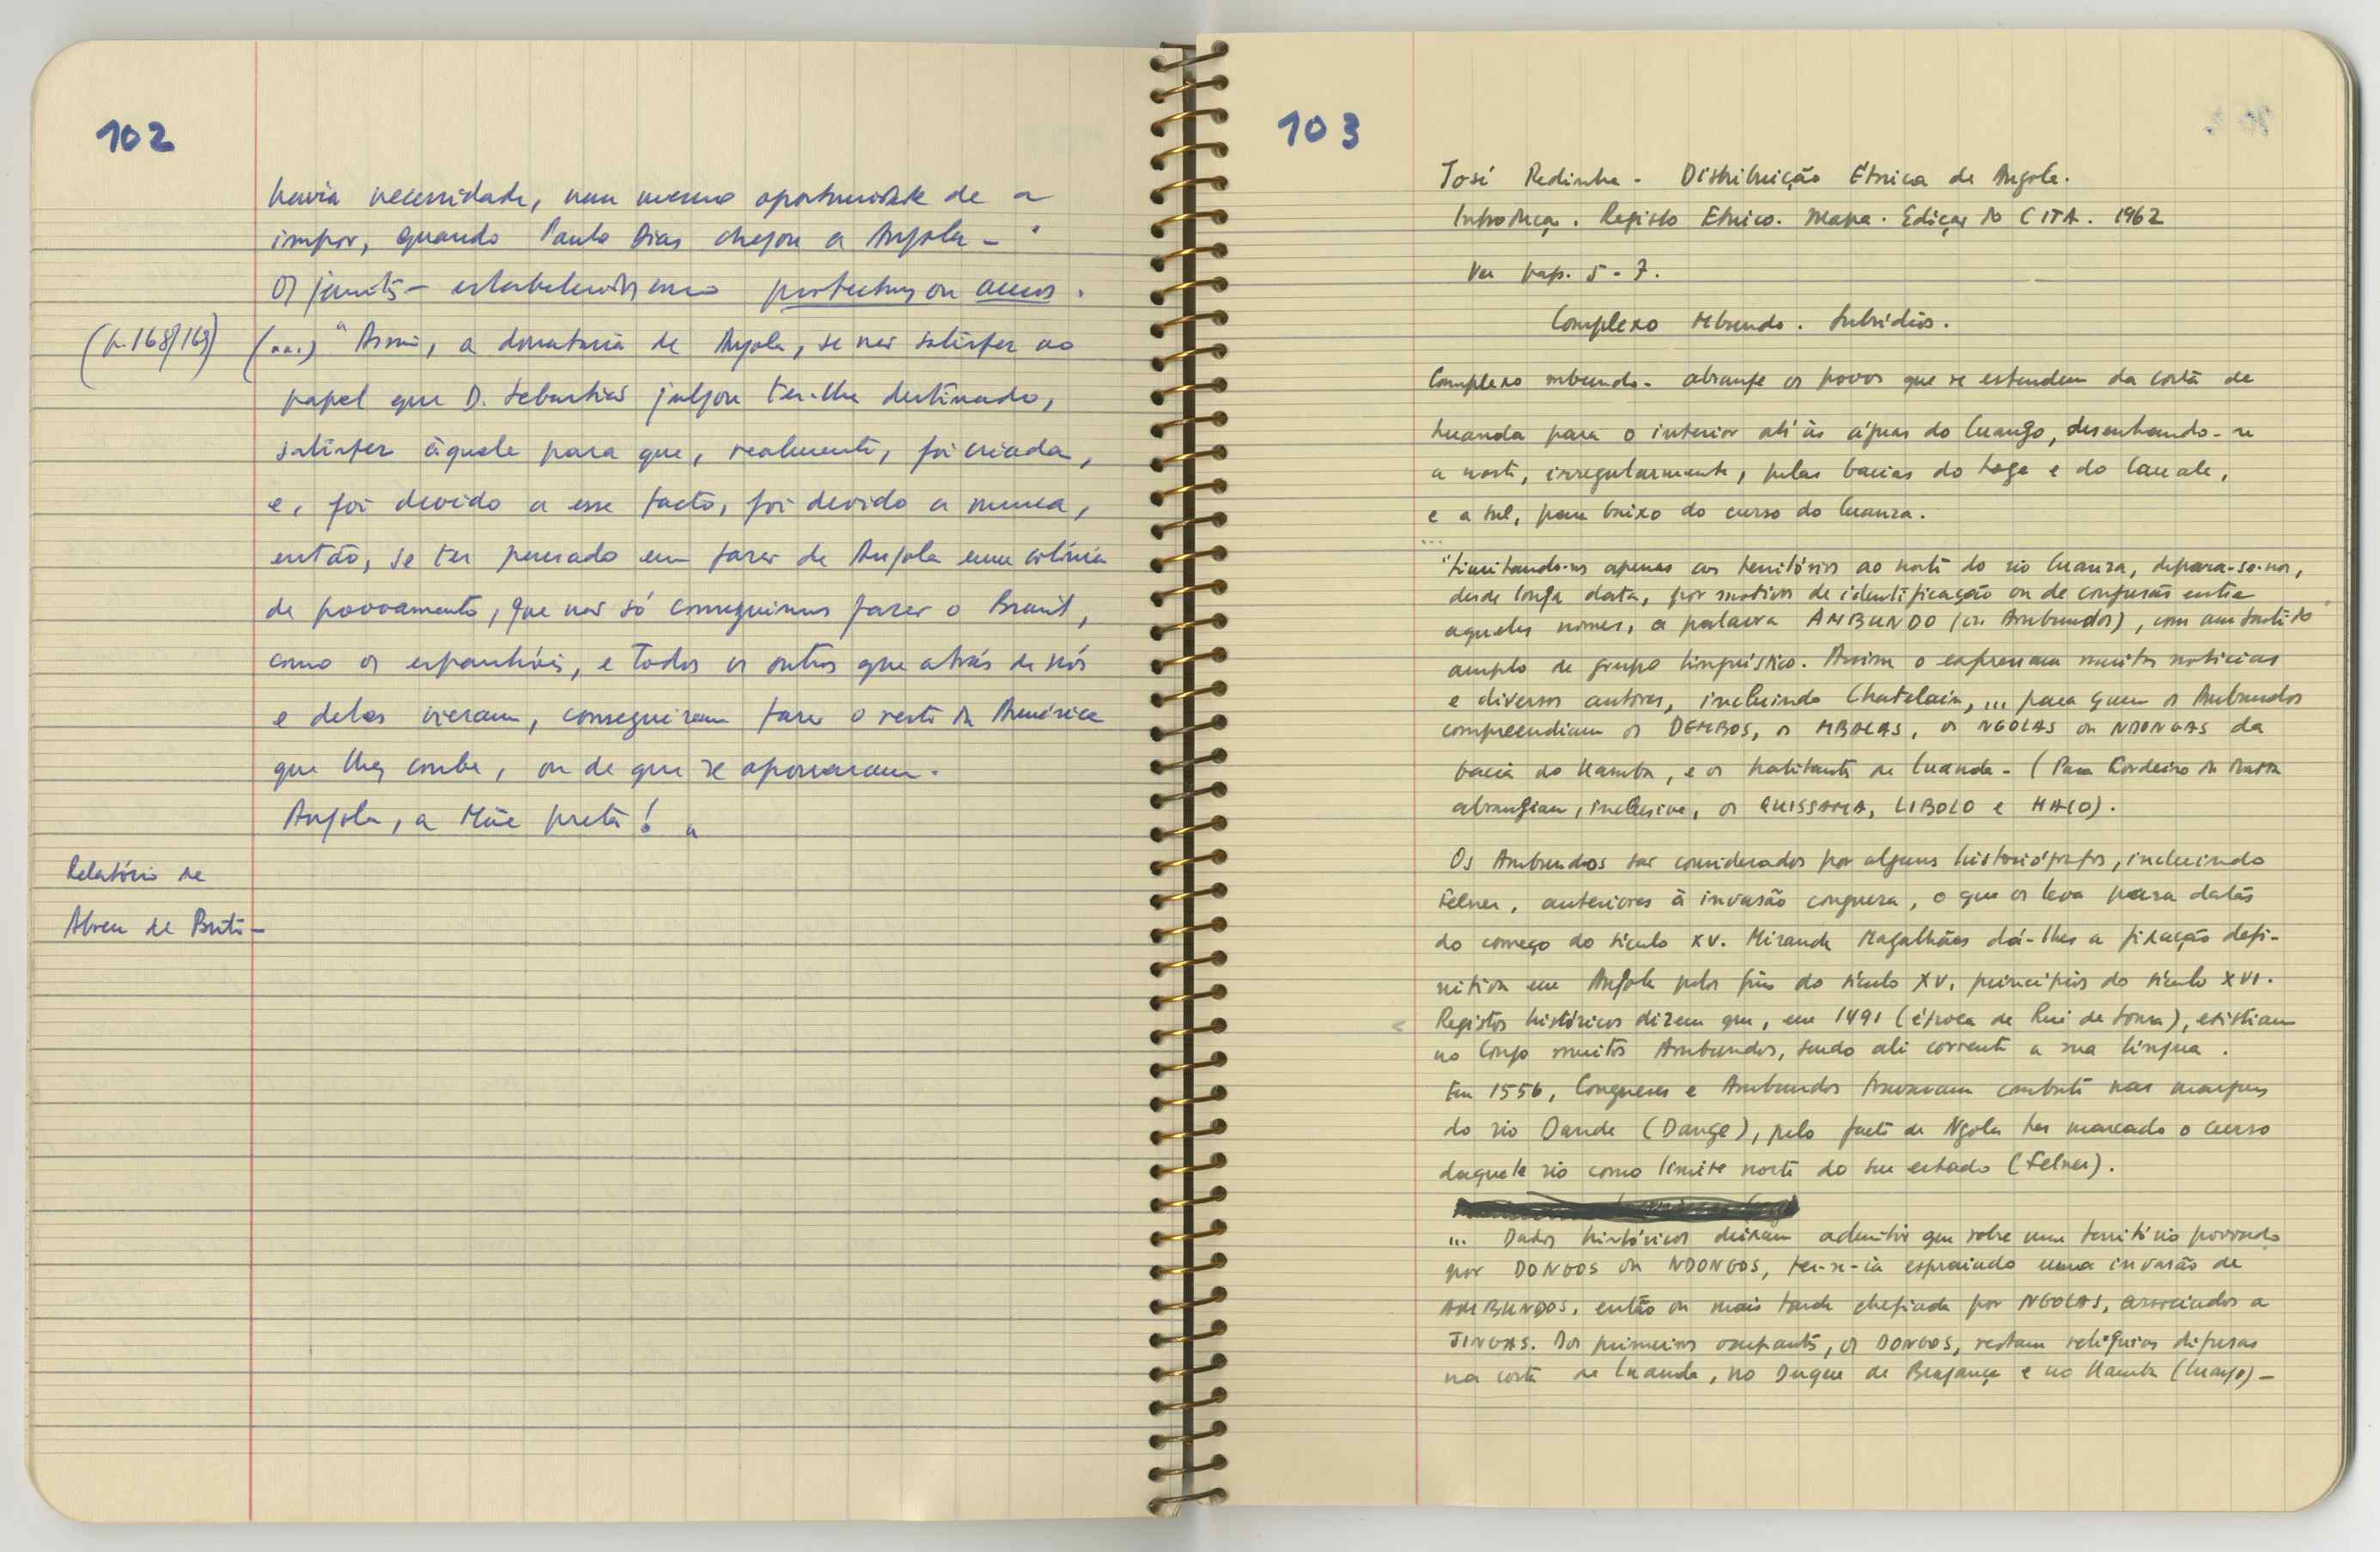 102
havia necessidade, nem mesmo oportunidade de a
impor, quando Paulo Dias chegou a Angola - "
Os jesuítas - estabelecidos como protectores ou amos.
(p. 168/169) (...) " Assim, a donataria de Angola, se não satisfez ao
papel que D. Sebastião julgou ter-lhe destinado,
satisfez àquele para que, realmente, foi criada,
e, foi devido a esse facto, foi devido a nunca,
então, se ter pensado em fazer de Angola uma colónia
de povoamento, que nós só conseguimos fazer o Brasil,
como os espanhóis, e todos os outros que atrás de nós
e deles vieram, conseguiram fazer o resto da América
que lhes coube, ou de que se apossaram.
Angola, a Mãe preta! "
Relatório de
Abreu de Brito -
103
José Redinha - Distribuição Étnica de Angola.
Introdução. Registo Étnico. Mapa. Edição do CITA. 1962
Ver pags. 5 - 7.
Complexo Mbundo. Subsídios.
Complexo mbundo - abrange os povos que se estendem da costa de
Luanda para o interior até às águas do Cuango, desenhando-se
a norte, irregularmente, pelas bacias do Loge e do Cauale,
e a sul, para baixo do curso do Cuanza.
...
"Limitando-nos apenas aos territórios ao norte do rio Cuanza, depara-se-nos,
desde longa data, por motivos de identificação ou de confusão entre
aqueles nomes, a palavra AMBUNDO (ou Ambundos), com um sentido
amplo de grupo linguístico. Assim o expressam muitas notícias
e diversos autores, incluindo Chatelain, ... para quem os Ambundos
compreendiam os DEMBOS, os MBACAS, os NGOLAS ou NDONGAS da
bacia do Hamba, e os habitantes de Luanda - (Para Cordeiro da Matta
abrangiam, inclusive, os QUISSAMA, LIBOLO e HACO).
Os Ambundos são considerados por alguns historiógrafos, incluindo
Felner, anteriores à invasão conguesa, o que os leva para datas
do começo do século XV. Miranda Magalhães dá-lhes a fixação defi-
nitiva em Angola pelos fins do século XV, princípios do século XVI.
Registos históricos dizem que, em 1491 (época de Rui de Sousa), existiam
no Congo muitos Ambundos, sendo ali corrente a sua língua.
Em 1556, Congueses e Ambundos travavam combate nas margens
do rio Dande (Dange), pelo facto de Ngola ter marcado o curso
daquele rio como limite norte do seu estado (Felner).
... Dados históricos deixam admitir que sobre um território povoado
por DONGOS ou NDONGOS, ter-se-ia espraiado uma invasão de
AMBUNDOS, então ou mais tarde chefiada por NGOLAS, associados a
JINGAS. Dos primeiros ocupantes, os DONGOS, restam relíquias difusas
na costa de Luanda, no Duque de Bragança e no Hamba (Cuango) -